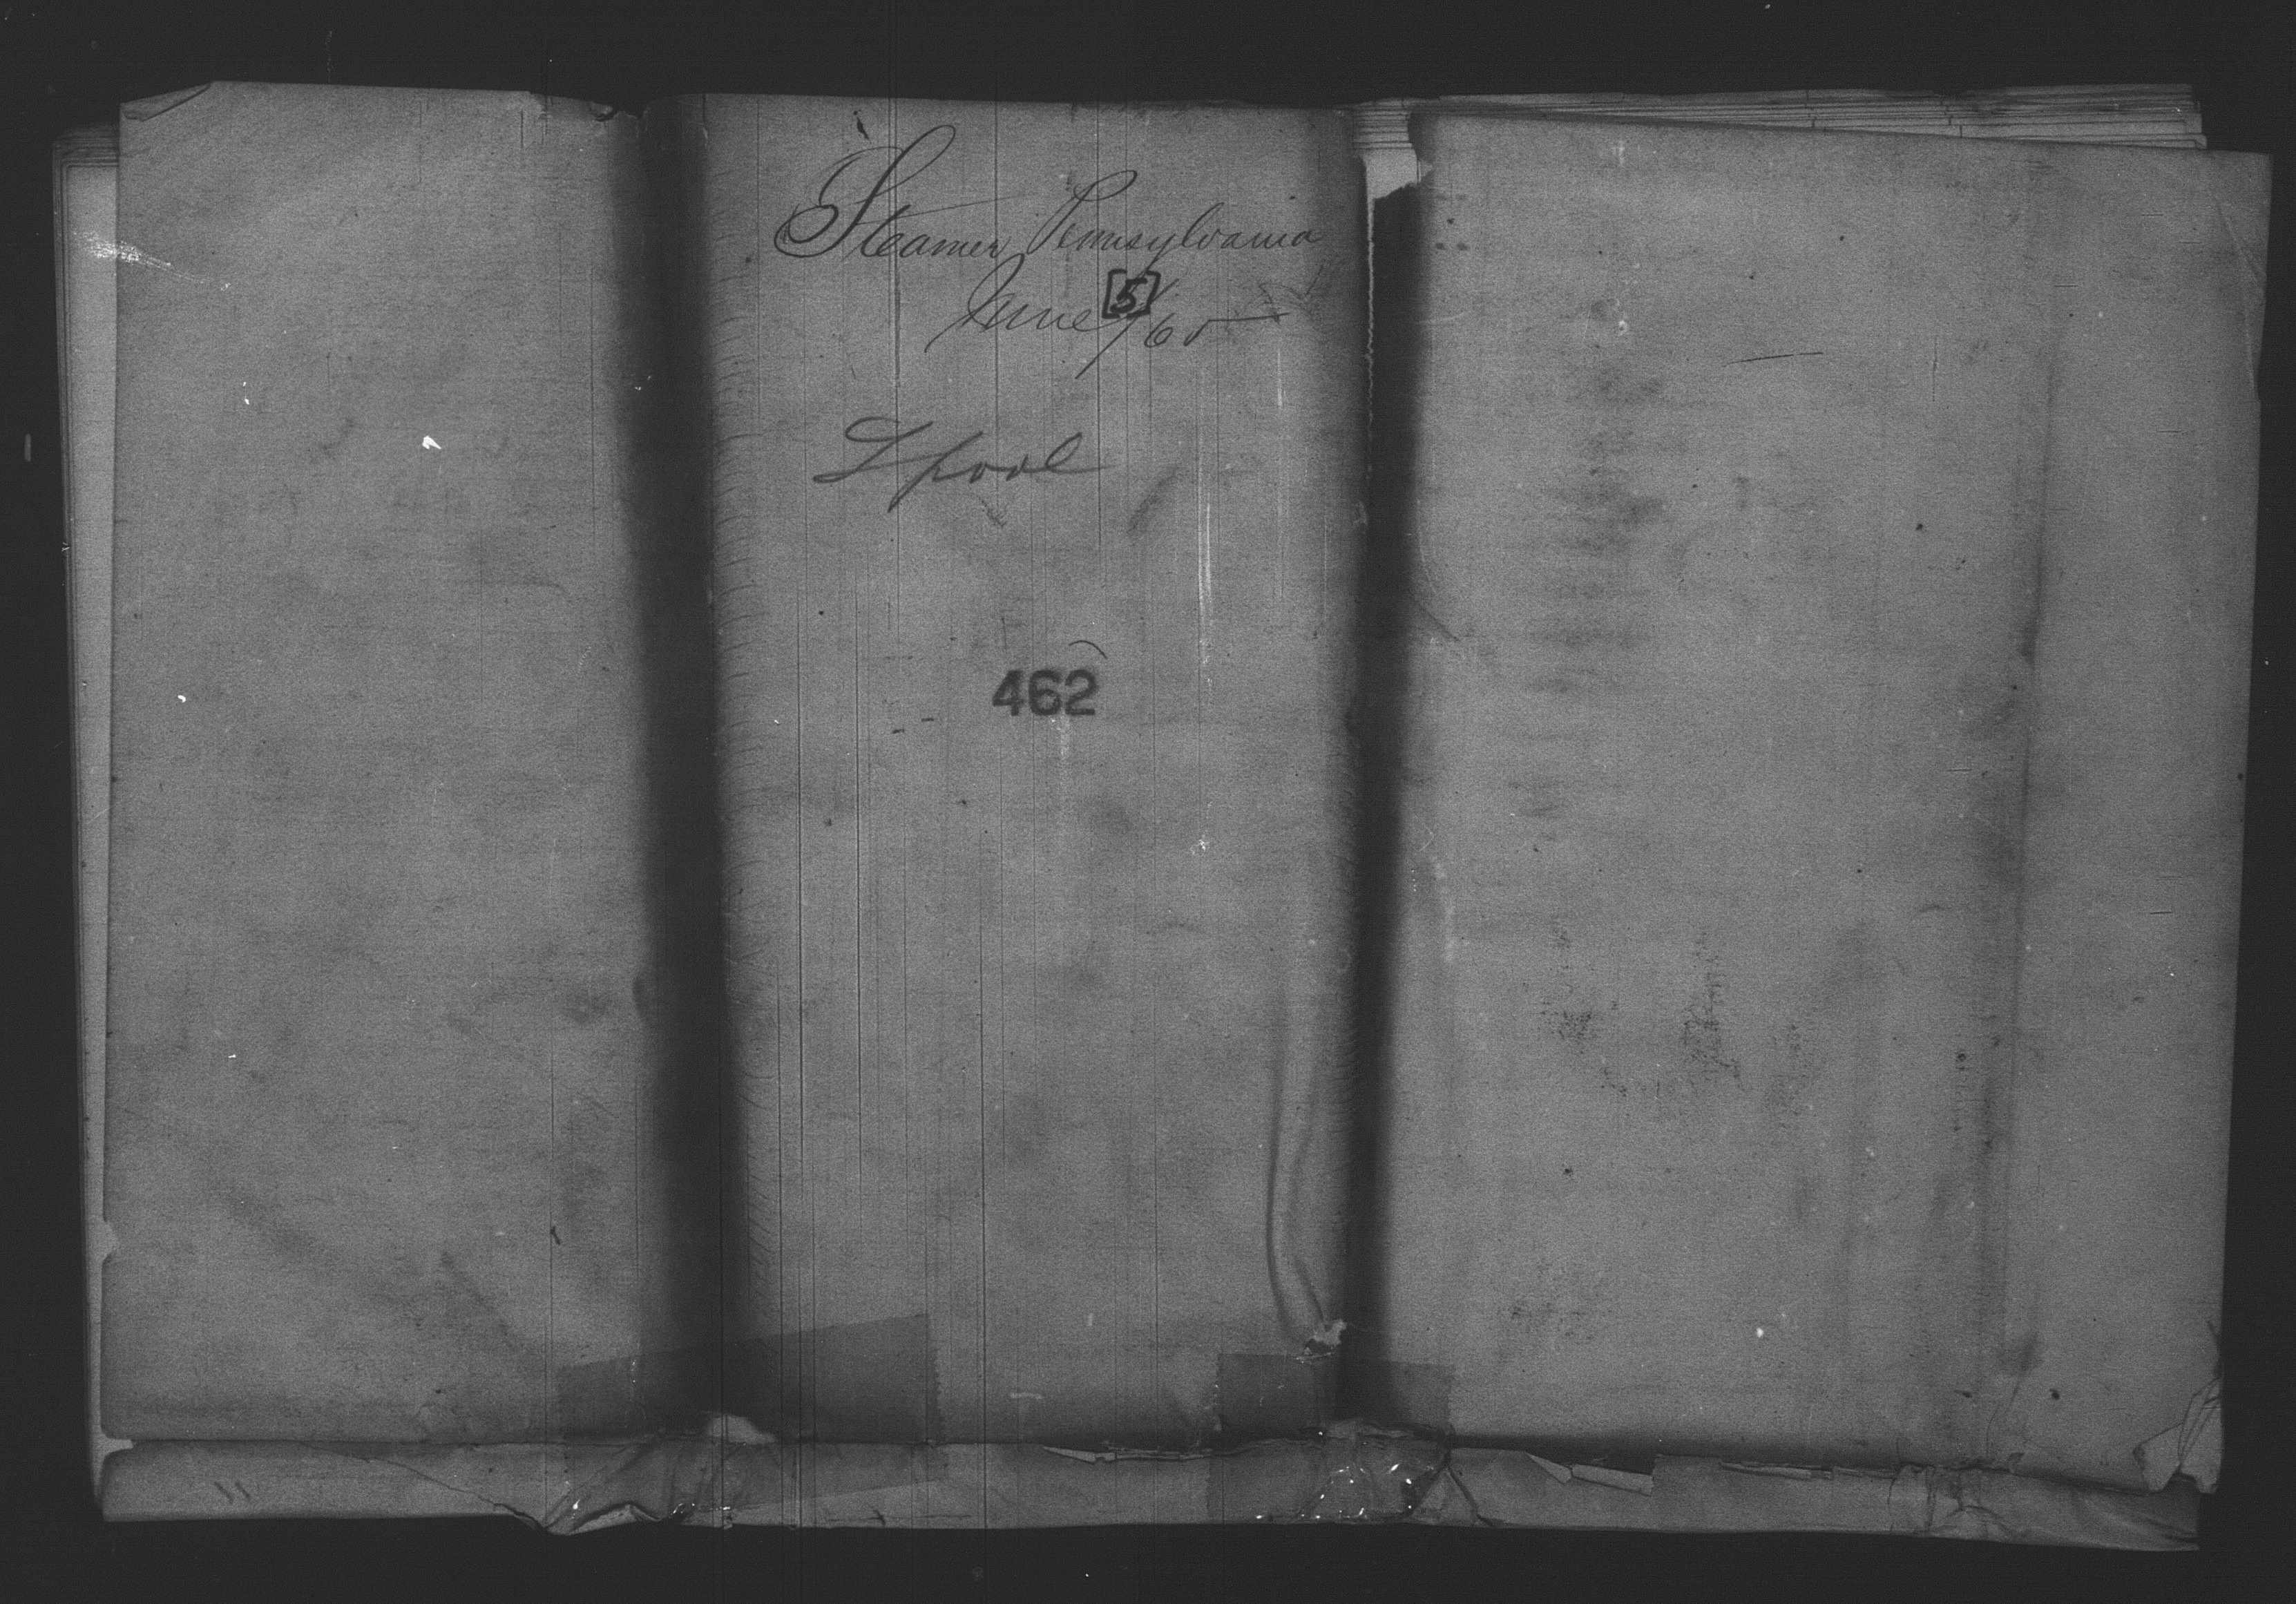 Steamer Pennsylvania
June [5]/65
Lpool
462